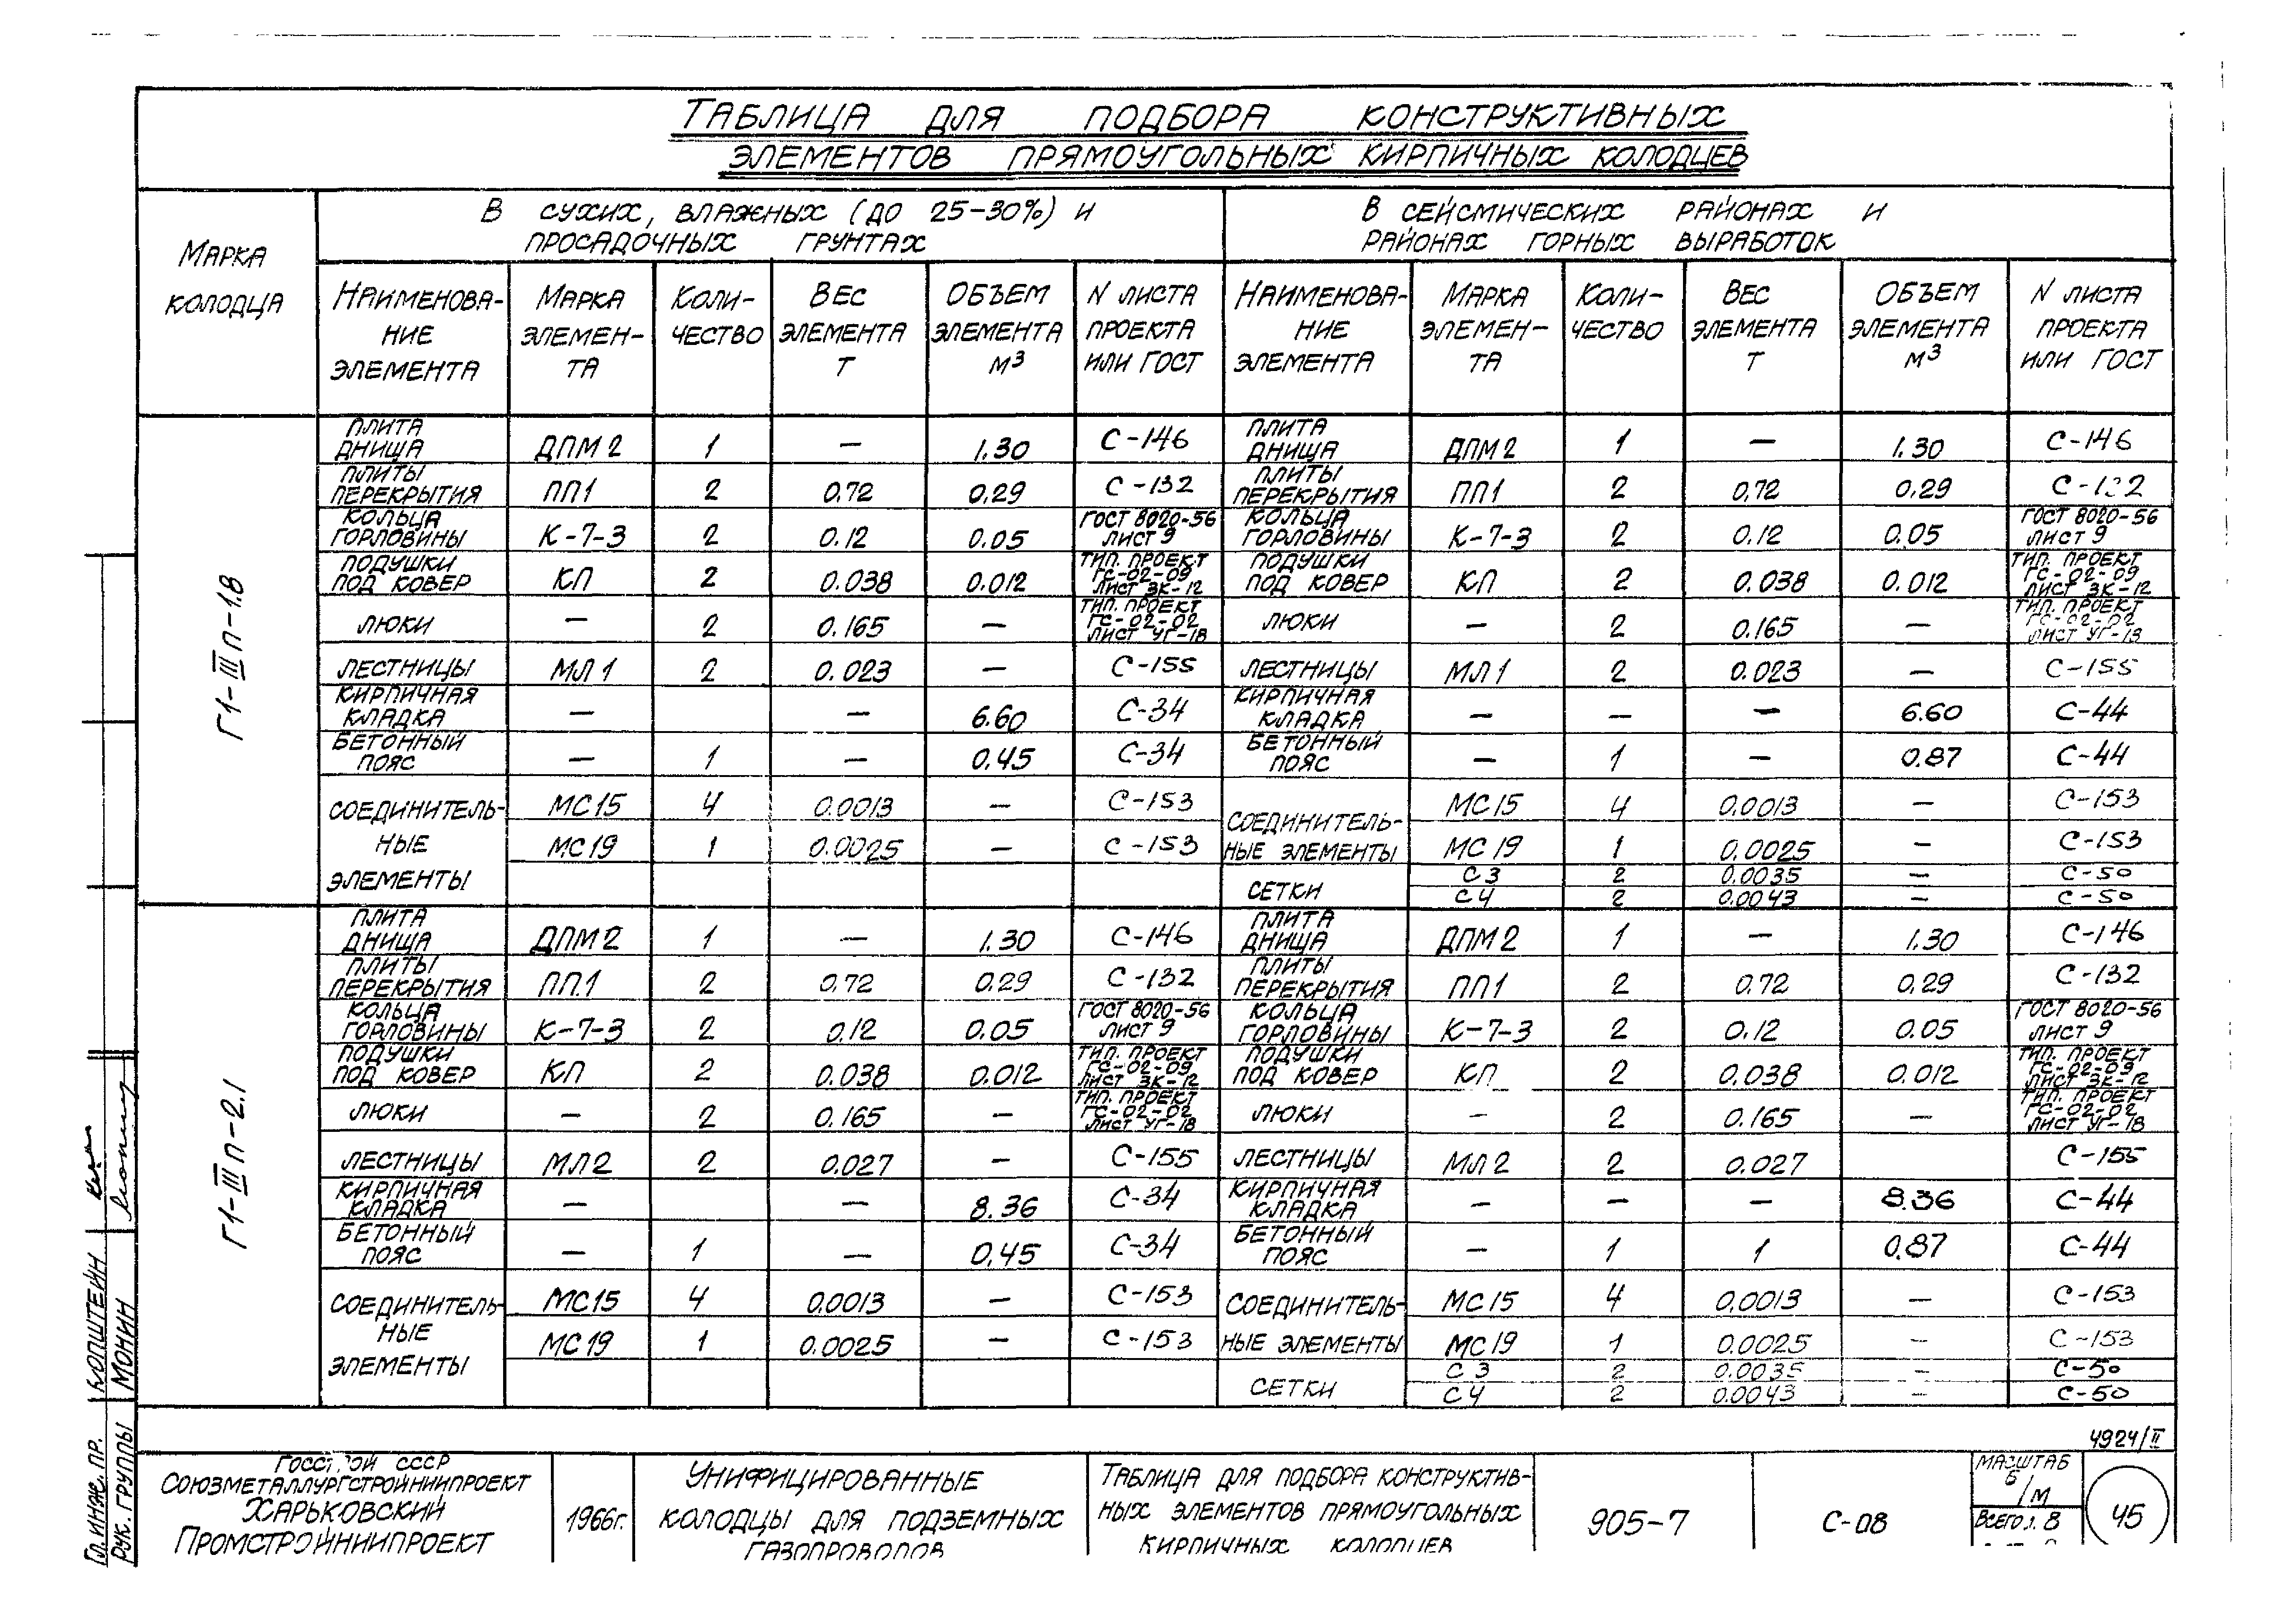 ТАБЛИЦА ДЛЯ ПОДБОРА КОНСТРУКТИВНЫХ
ЭЛЕМЕНТОВ ПРЯМОУГОЛЬНЫХ КИРПИЧНЫХ КОЛОДЦЕВ
МАРКА КОЛОДЦА
В СУХИХ, ВЛАЖНЫХ (ДО 25-30%) И
ПРОСАДОЧНЫХ ГРУНТАХ
В СЕЙСМИЧЕСКИХ РАЙОНАХ И
РАЙОНАХ ГОРНЫХ ВЫРАБОТОК
НАИМЕНОВА- МАРКА КОЛИ- ВЕС ОБЪЕМ N ЛИСТА НАИМЕНОВА- МАРКА КОЛИ- ВЕС ОБЪЕМ N ЛИСТА
НИЕ ЭЛЕМЕН- ЧЕСТВО ЭЛЕМЕНТА ЭЛЕМЕНТА ПРОЕКТА НИЕ ЭЛЕМЕН- ЧЕСТВО ЭЛЕМЕНТА ЭЛЕМЕНТА ПРОЕКТА
ЭЛЕМЕНТА ТА Т М³ ИЛИ ГОСТ ЭЛЕМЕНТА ТА Т М³ ИЛИ ГОСТ
Г1-IIIп-1.8
ПЛИТА ДНИЩА ДПМ2 1 — 1.30 С-146 ПЛИТА ДНИЩА ДПМ2 1 — 1.30 С-146
ПЛИТЫ ПЕРЕКРЫТИЯ ПП1 2 0.72 0.29 С-132 ПЛИТЫ ПЕРЕКРЫТИЯ ПП1 2 0,72 0.29 С-132
КОЛЬЦА ГОРЛОВИНЫ К-7-3 2 0.12 0.05 ГОСТ 8020-56 ЛИСТ 9 КОЛЬЦА ГОРЛОВИНЫ К-7-3 2 0.12 0.05 ГОСТ 8020-56 ЛИСТ 9
ПОДУШКИ ПОД КОВЕР КП 2 0.038 0.012 ТИП. ПРОЕКТ ГС-02-09 ЛИСТ ЗК-12 ПОДУШКИ ПОД КОВЕР КП 2 0.038 0.012 ТИП. ПРОЕКТ ГС-02-09 ЛИСТ ЗК-12
ЛЮКИ — 2 0.165 — ТИП. ПРОЕКТ ГС-02-02 ЛИСТ УГ-18 ЛЮКИ — 2 0.165 — ТИП. ПРОЕКТ ГС-02-02 ЛИСТ УГ-18
ЛЕСТНИЦЫ МЛ1 2 0.023 — С-155 ЛЕСТНИЦЫ МЛ1 2 0.023 — С-155
КИРПИЧНАЯ КЛАДКА — — 6.60 С-34 КИРПИЧНАЯ КЛАДКА — — — 6.60 С-44
БЕТОННЫЙ ПОЯС — 1 — 0.45 С-34 БЕТОННЫЙ ПОЯС — 1 — 0.87 С-44
СОЕДИНИТЕЛЬ- МС15 4 0.0013 — С-153 СОЕДИНИТЕЛЬ- МС15 4 0.0013 — С-153
НЫЕ МС19 1 0.0025 — С-153 НЫЕ ЭЛЕМЕНТЫ МС19 1 0.0025 — С-153
ЭЛЕМЕНТЫ СЕТКИ С3 2 0.0035 — С-50
С4 2 0.0043 — С-50
Г1-IIIп-2.1
ПЛИТА ДНИЩА ДПМ2 1 — 1.30 С-146 ПЛИТА ДНИЩА ДПМ2 1 — 1.30 С-146
ПЛИТЫ ПЕРЕКРЫТИЯ ПП.1 2 0,72 0.29 С-132 ПЛИТЫ ПЕРЕКРЫТИЯ ПП1 2 0.72 0,29 С-132
КОЛЬЦА ГОРЛОВИНЫ К-7-3 2 0.12 0.05 ГОСТ 8020-56 ЛИСТ 9 КОЛЬЦА ГОРЛОВИНЫ К-7-3 2 0.12 0.05 ГОСТ 8020-56 ЛИСТ 9
ПОДУШКИ ПОД КОВЕР КП 2 0.038 0.012 ТИП. ПРОЕКТ ГС-02-09 ЛИСТ ЗК-12 ПОДУШКИ ПОД КОВЕР КП 2 0.038 0.012 ТИП. ПРОЕКТ ГС-02-09 ЛИСТ ЗК-12
ЛЮКИ — 2 0.165 — ТИП. ПРОЕКТ ГС-02-02 ЛИСТ УГ-18 ЛЮКИ — 2 0.165 — ТИП. ПРОЕКТ ГС-02-02 ЛИСТ УГ-18
ЛЕСТНИЦЫ МЛ2 2 0.027 — С-155 ЛЕСТНИЦЫ МЛ2 2 0.027 С-155
КИРПИЧНАЯ КЛАДКА — — 8.36 С-34 КИРПИЧНАЯ КЛАДКА — — — 8.36 С-44
БЕТОННЫЙ ПОЯС — 1 — 0,45 С-34 БЕТОННЫЙ ПОЯС — 1 1 0.87 С-44
СОЕДИНИТЕЛЬ- МС15 4 0.0013 — С-153 СОЕДИНИТЕЛЬ- МС15 4 0,0013 — С-153
НЫЕ МС19 1 0.0025 — С-153 НЫЕ ЭЛЕМЕНТЫ МС19 1 0.0025 — С-153
ЭЛЕМЕНТЫ СЕТКИ С3 2 0.0035 — С-50
С4 2 0.0043 — С-50
4924/II
ГЛ. ИНЖ. ПР. КОПШТЕЙН
РУК. ГРУППЫ МОНИН
ГОССТРОЙ СССР
СОЮЗМЕТАЛЛУРГСТРОЙНИИПРОЕКТ
ХАРЬКОВСКИЙ
ПРОМСТРОЙНИИПРОЕКТ
1966г.
УНИФИЦИРОВАННЫЕ
КОЛОДЦЫ ДЛЯ ПОДЗЕМНЫХ
ГАЗОПРОВОДОВ
ТАБЛИЦА ДЛЯ ПОДБОРА КОНСТРУКТИВ-
НЫХ ЭЛЕМЕНТОВ ПРЯМОУГОЛЬНЫХ
КИРПИЧНЫХ КОЛОДЦЕВ
905-7
С-08
МАСШТАБ
Б/М
ВСЕГО Л. 8
45